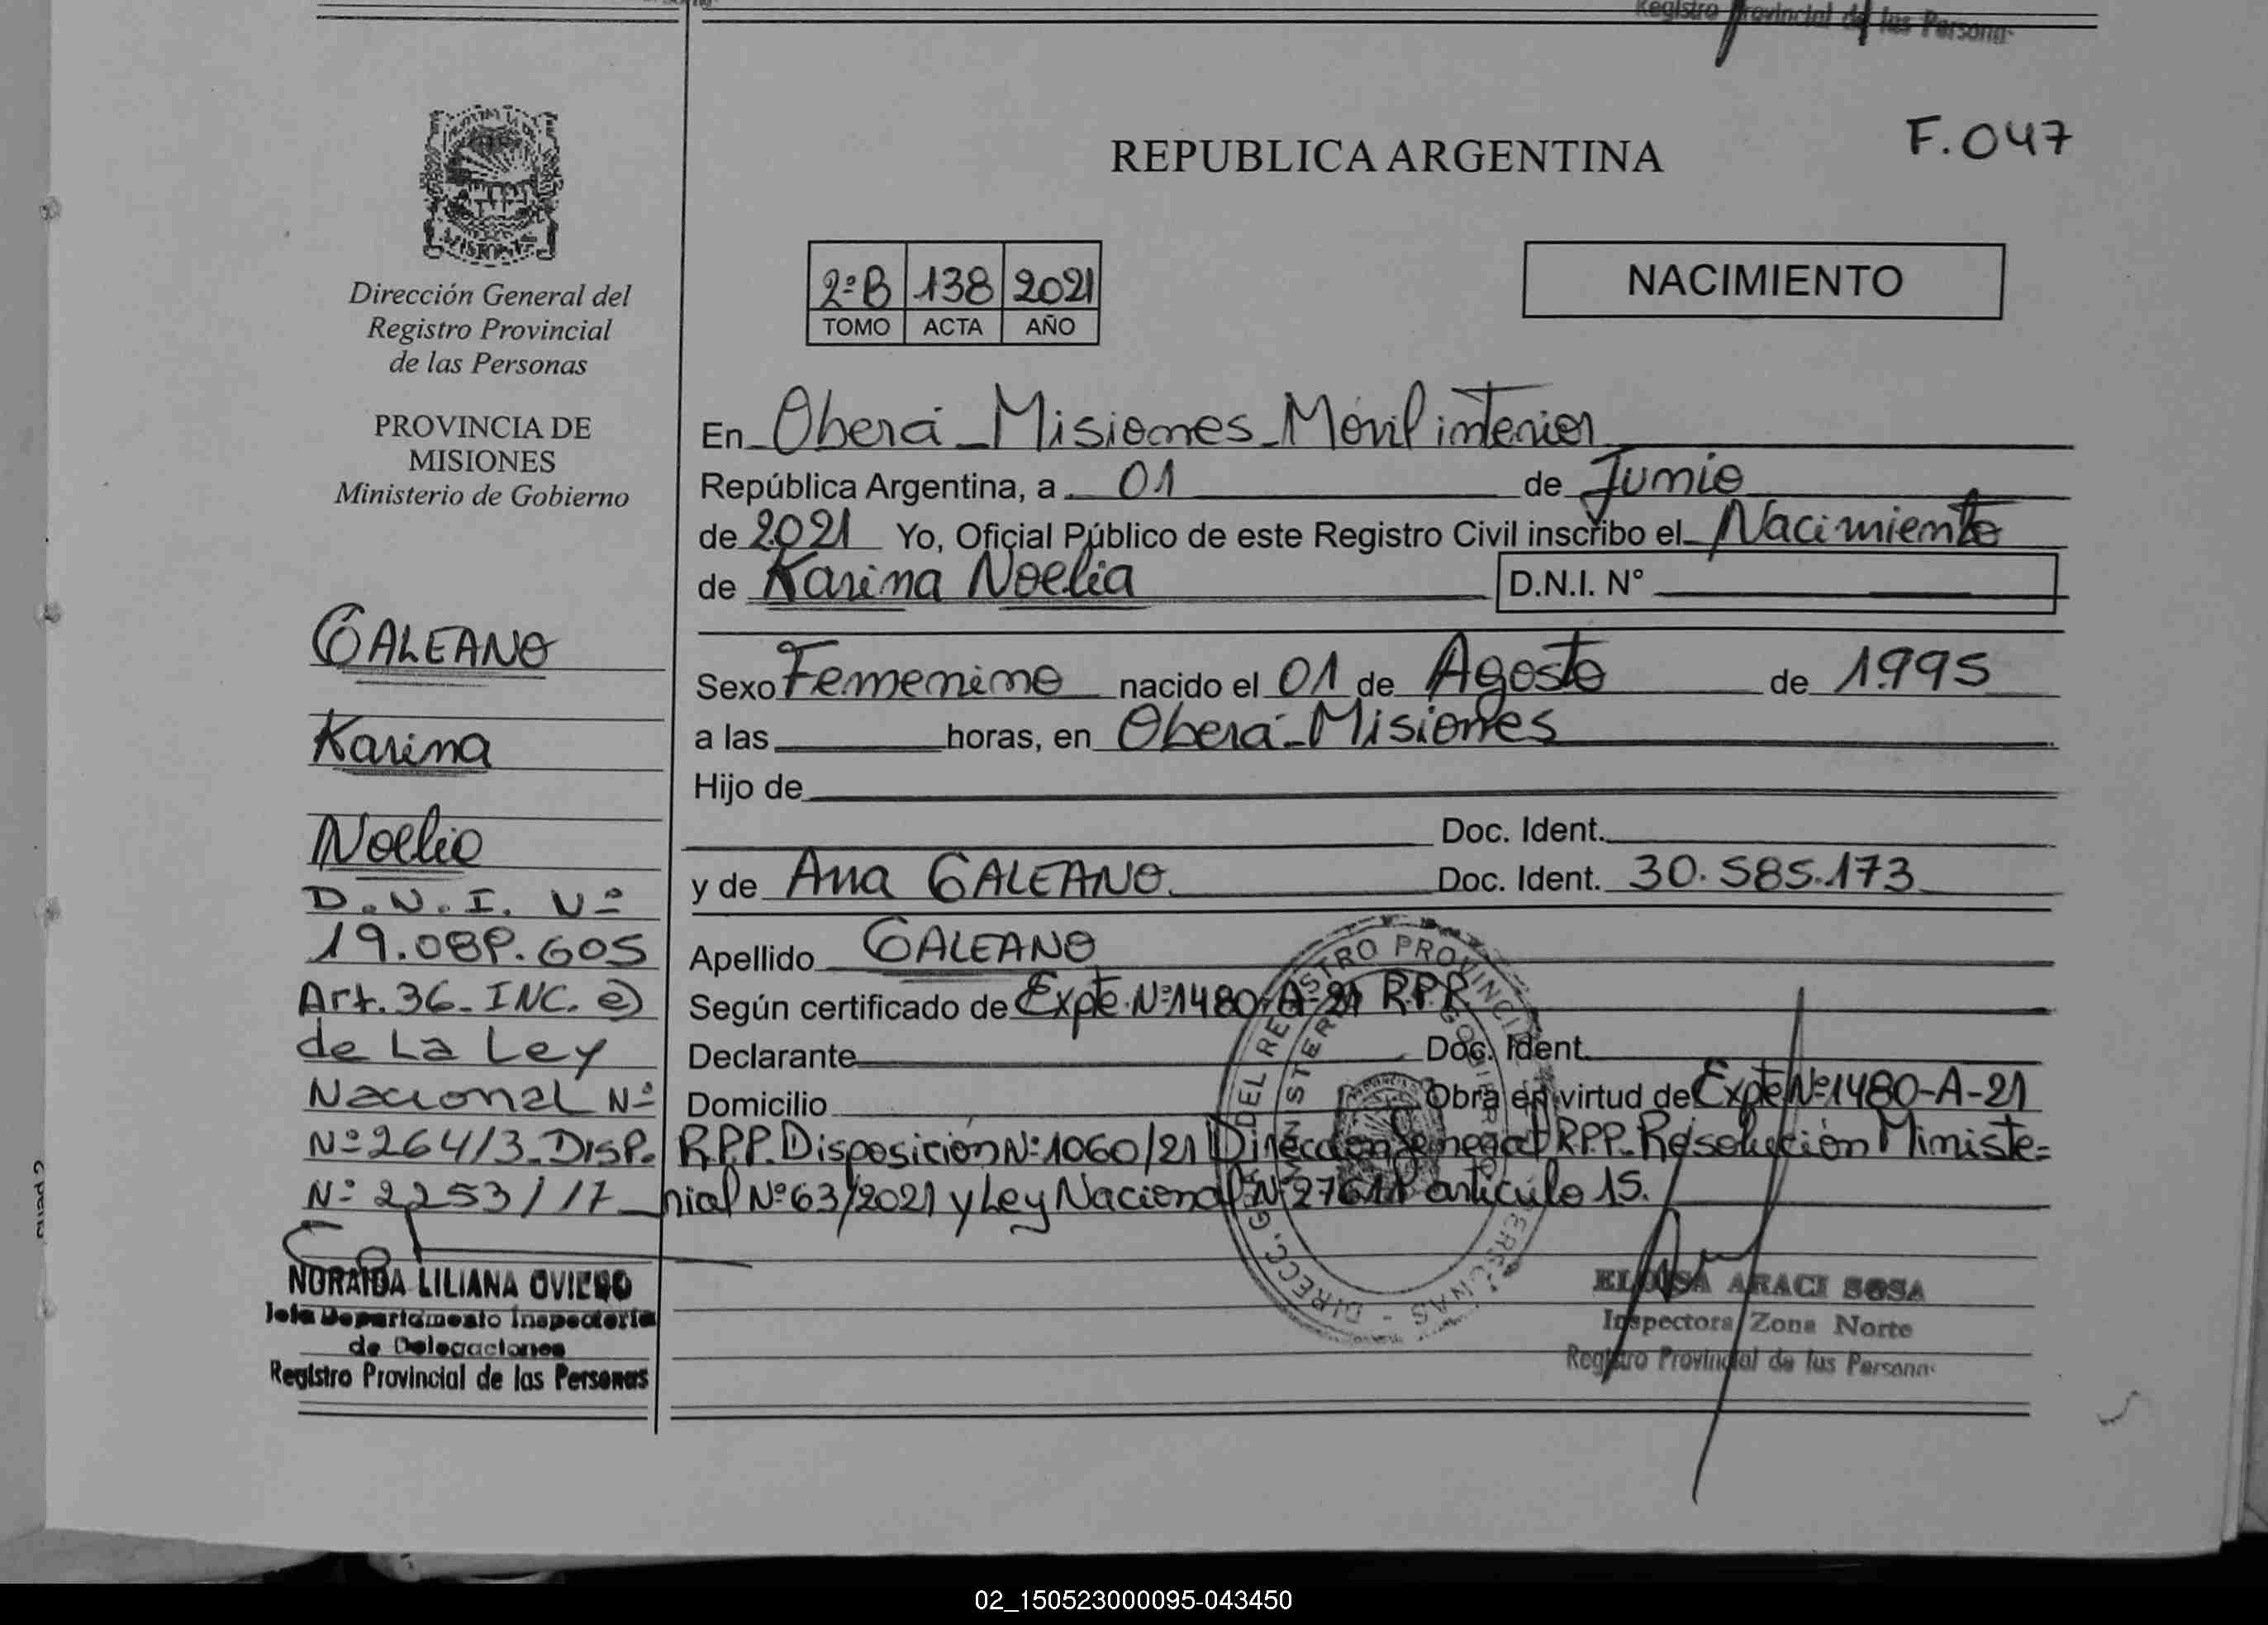 Registro Provincial de las Personas
F.047
REPUBLICA ARGENTINA
2ºB 138 2021
TOMO ACTA AÑO
NACIMIENTO
Dirección General del
Registro Provincial
de las Personas
PROVINCIA DE
MISIONES
Ministerio de Gobierno
GALEANO
Karina
Noelia
D.N.I. Nº
19.089.605
Art. 36_INC. c)
de La Ley
Nacional Nº
Nº 264/3_DISP.
Nº 2253/17_
NORAIDA LILIANA OVIEDO
Jefa Departamento Inspectoria
de Delegaciones
Registro Provincial de las Personas
En Oberá_Misiones_Móvil interior
República Argentina, a 01 de Junio
de 2021 Yo, Oficial Público de este Registro Civil inscribo el Nacimiento
de Karina Noelia D.N.I. N°
Sexo Femenino nacido el 01 de Agosto de 1995
a las horas, en Oberá-Misiones
Hijo de
Doc. Ident.
y de Ana GALEANO. Doc. Ident. 30.585.173
Apellido GALEANO
Según certificado de Expte.Nº1480-A-21 R.P.P.
Declarante Doc. Ident.
Domicilio Obra en virtud de Expte Nº1480-A-21
R.P.P. Disposición Nº1060/21 Dirección General R.P.P. Resolución Ministe=
rial Nº63/2021 y Ley Nacional Nº27611 artículo 15.
DIRECC. G DEL REGISTRO PROVINCIAL PERSONAS -
MINISTER GOBIER
ELOISA ARACI SOSA
Inspectora Zona Norte
Registro Provincial de las Personas
02_150523000095-043450